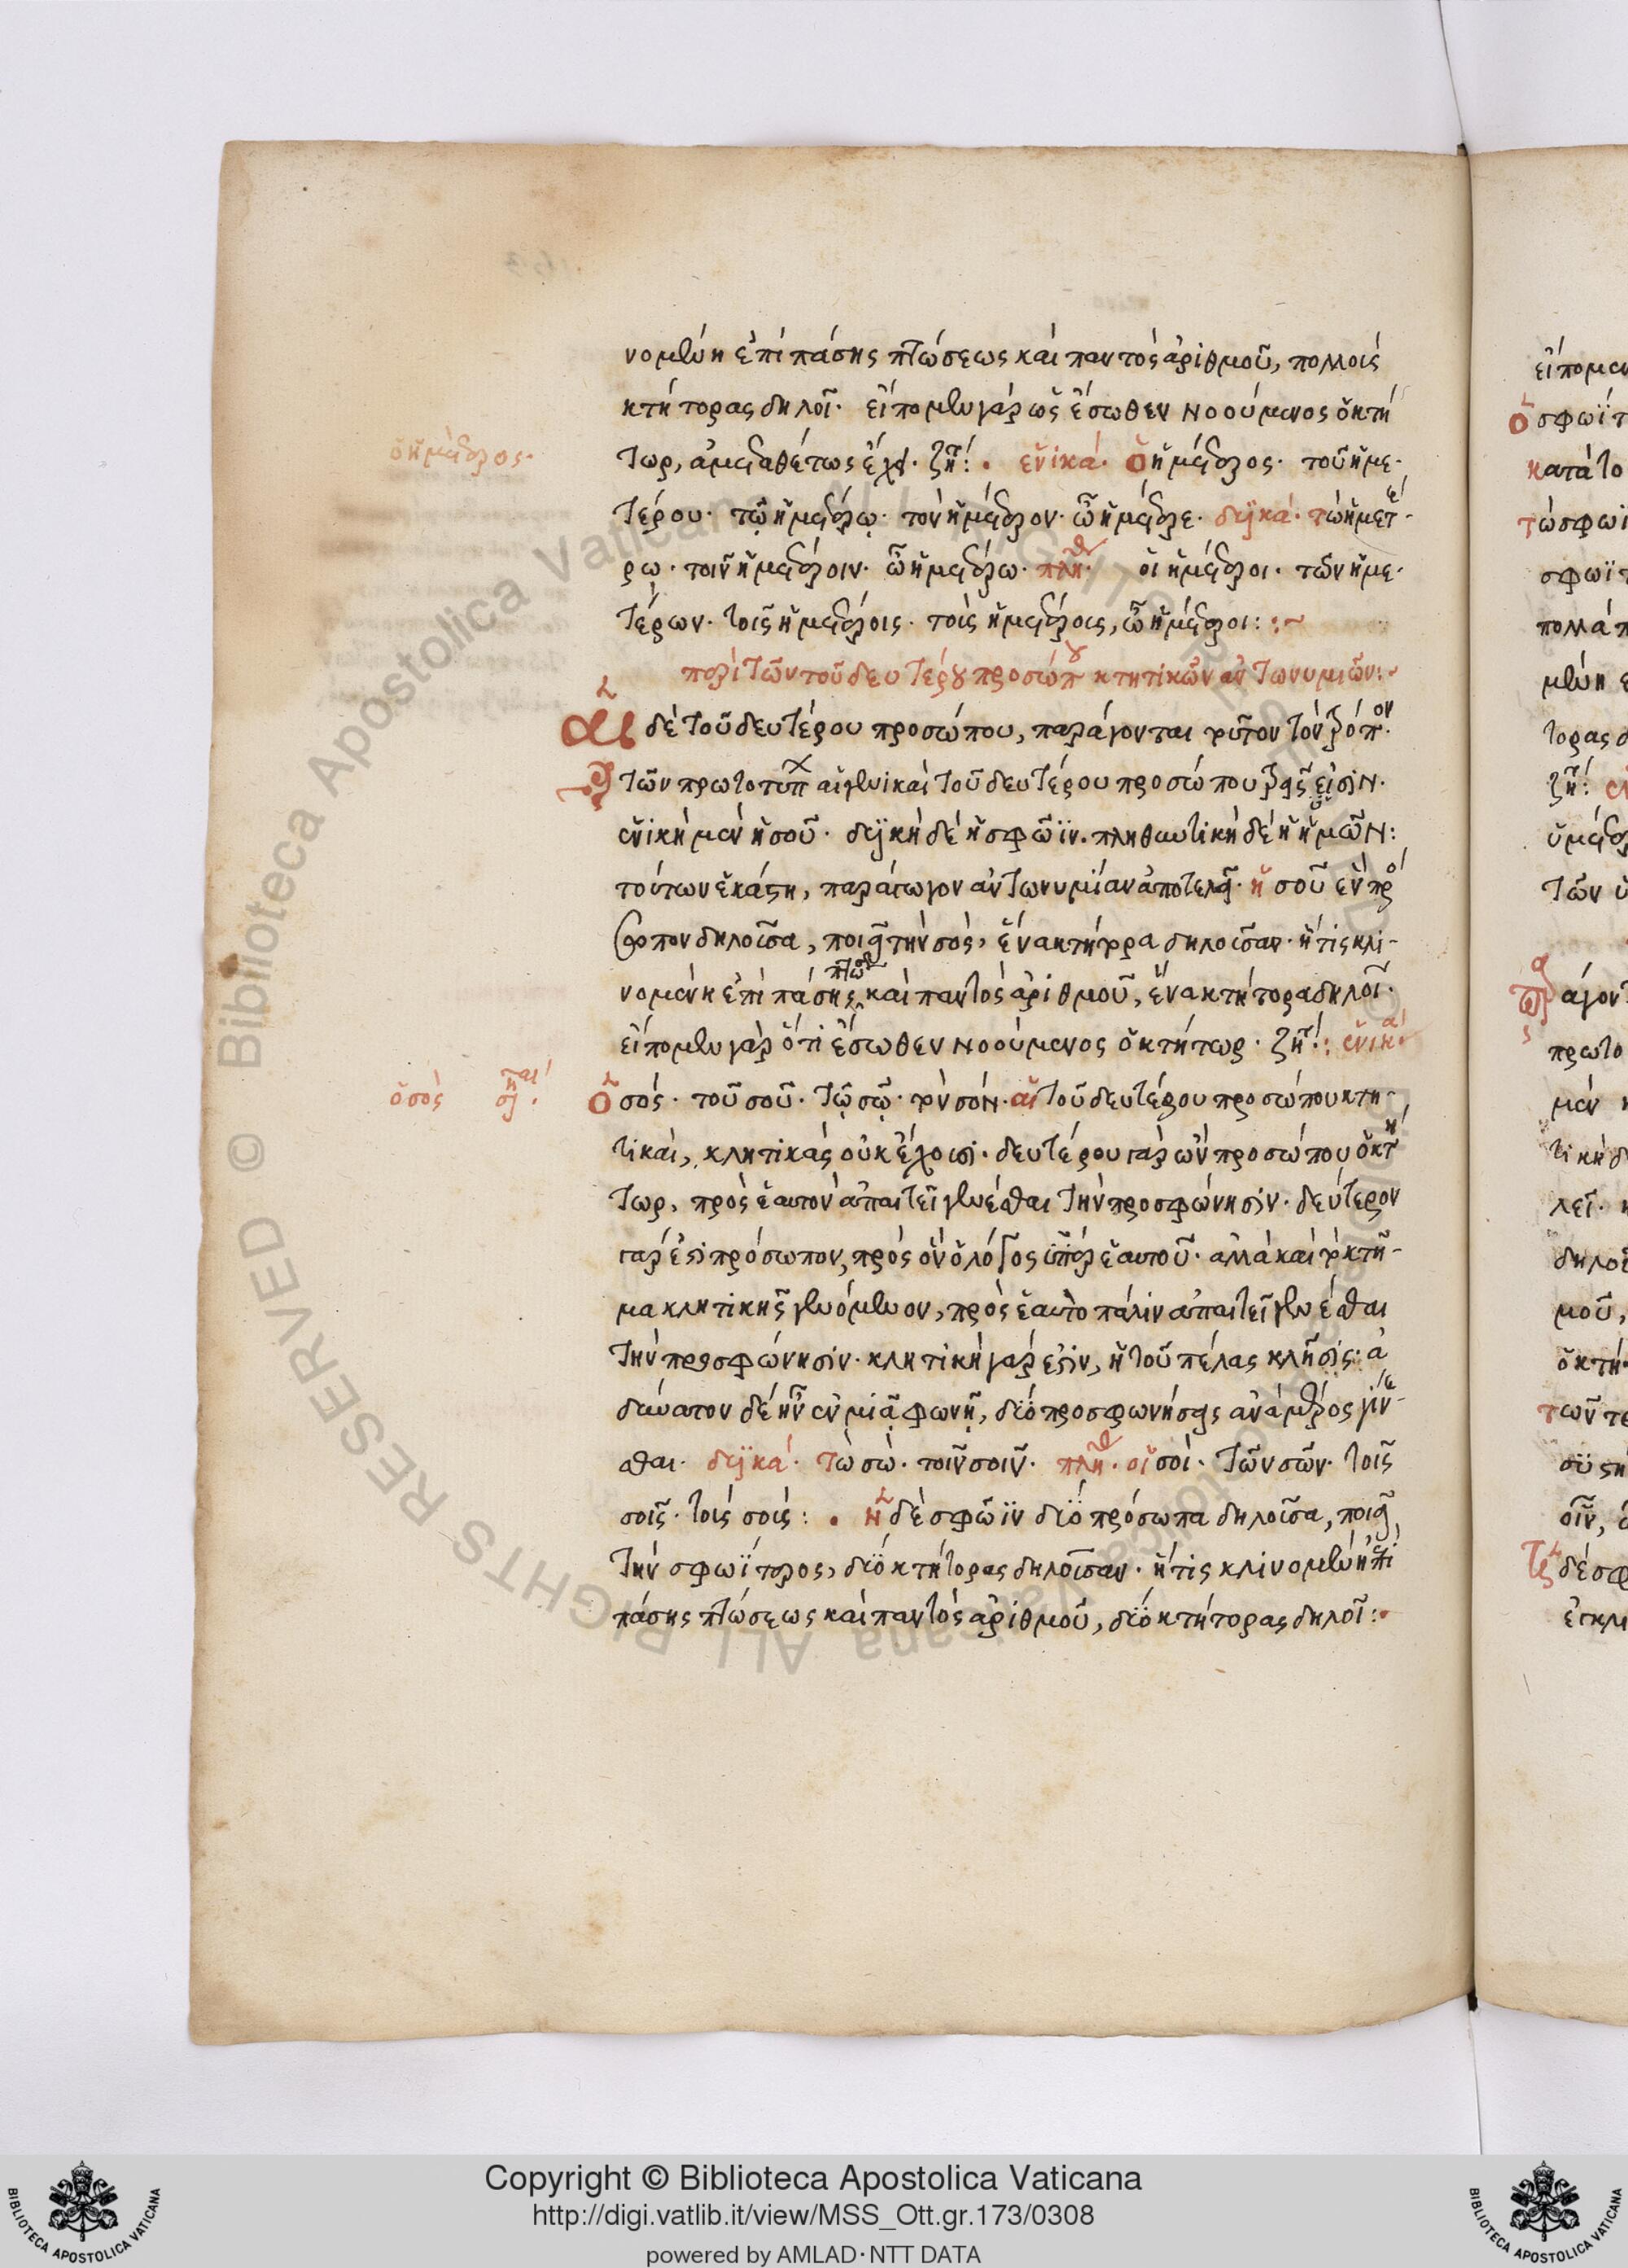 νομένη ἐπὶ πάσης πτώσεως καὶ παντὸς ἀριθμοῦ, πολλοὺς
κτήτορας δηλοῖ· εἴπομεν γὰρ ὡς ἔσωθεν νοούμενος ὁ κτή
τωρ, ἀμεταθέτως ἔχει· ζήτ: · ἑνικά· ὁ ἡμέτερος· τοῦ ἡμε-
ὁ ἡμέτερος·
τέρου· τῷ ἡμετέρῳ· τὸν ἡμέτερον· ὦ ἡμέτερε· δυϊκά· τὼ ἡμετέ-
ρω· τοῖν ἡμετέροιν· ὦ ἡμετέρω· πληθ· οἱ ἡμέτεροι· τῶν ἡμε-
τέρων· τοῖς ἡμετέροις· τοὺς ἡμετέρους, ὦ ἡμέτεροι: :~
περὶ τῶν τοῦ δευτέρου προσώπου κτητικῶν ἀντωνυμιῶν:~
Αἱ δὲ τοῦ δευτέρου προσώπου, παράγονται τοῦτον τὸν τρόπον·
τῶν πρωτοτύπ αἱ γενικαὶ τοῦ δευτέρου προσώπου τρεῖς εἰσὶν·
ἑνικὴ μὲν ἡ σοῦ· δυϊκὴ δὲ ἡ σφῶϊν· πληθυντικὴ δὲ ἡ ἡμῶν:
τούτων ἑκάστη, παράγωγον ἀντωνυμίαν ἀποτελεῖ· ἡ σοῦ ἓν πρό
σωπον δηλοῦσα, ποιεῖ τὴν σὸς, ἕνα κτήτορα δηλοῦσαν· ἥτις κλι-
νομένη ἐπὶ πάσης πτώσεως καὶ παντὸς ἀριθμοῦ, ἕνα κτήτορα δηλοῖ·
εἴπομεν γὰρ ὅτι ἔσωθεν νοούμενος ὁ κτήτωρ· ζήτ: ἑνικά·
ὁ σὸς
Ὁ σός· τοῦ σοῦ· τῷ σῷ· τὸν σόν· αἱ τοῦ δευτέρου προσώπου κτη-
τικαὶ, κλητικὰς οὐκ ἔχουσι· δευτέρου γὰρ ὢν προσώπου ὁ κτή
τωρ, πρὸς ἑαυτὸν ἀπαιτεῖ γενέσθαι τὴν προσφώνησιν· δεύτερον
γάρ ἐστι πρόσωπον, πρὸς ὃν ὁ λόγος ὑπὲρ ἑαυτοῦ· ἀλλὰ καὶ τὸ κτῆ-
μα κλητικῆς γενόμενον, πρὸς ἑαυτὸ πάλιν ἀπαιτεῖ γενέσθαι
τὴν προσφώνησιν· κλητικὴ γάρ ἐστιν, ἡ τοῦ πέλας κλῆσις: ἀ
δύνατον δὲ ἦν ἐν μιᾷ φωνῇ, δύο προσφωνήσεις ἀνὰ μέρος γίνε-
σθαι· δυϊκά· τὼ σώ· τοῖν σοῖν· πληθ· οἱ σοί· τῶν σῶν· τοῖς
σοῖς· τοὺς σούς: · ἡ δὲ σφῶϊν δύο πρόσωπα δηλοῦσα, ποιεῖ
τὴν σφωΐτερος, δύο κτήτορας δηλοῦσαν· ἥτις κλινομένη ἐπὶ
πάσης πτώσεως καὶ παντὸς ἀριθμοῦ, δύο κτήτορας δηλοῖ:·
Copyright © Biblioteca Apostolica Vaticana
http://digi.vatlib.it/view/MSS_Ott.gr.173/0308
powered by AMLAD·NTT DATA
BIBLIOTECA APOSTOLICA VATICANA
BIBLIOTECA APOSTOLICA VATICANA